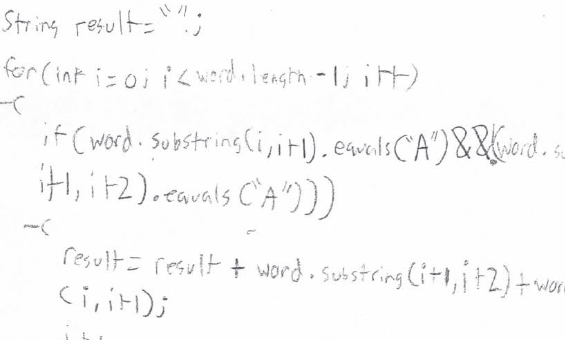 String result = "";
for(int i=0; i < word.length -1; i++)
{
if (word.substring(i,i+1).equals("A") && !(word.su
i+1, i+2).equals("A")))
{
result = result + word.substring(i+1,i+2) + wor
(i, i+1);
i+